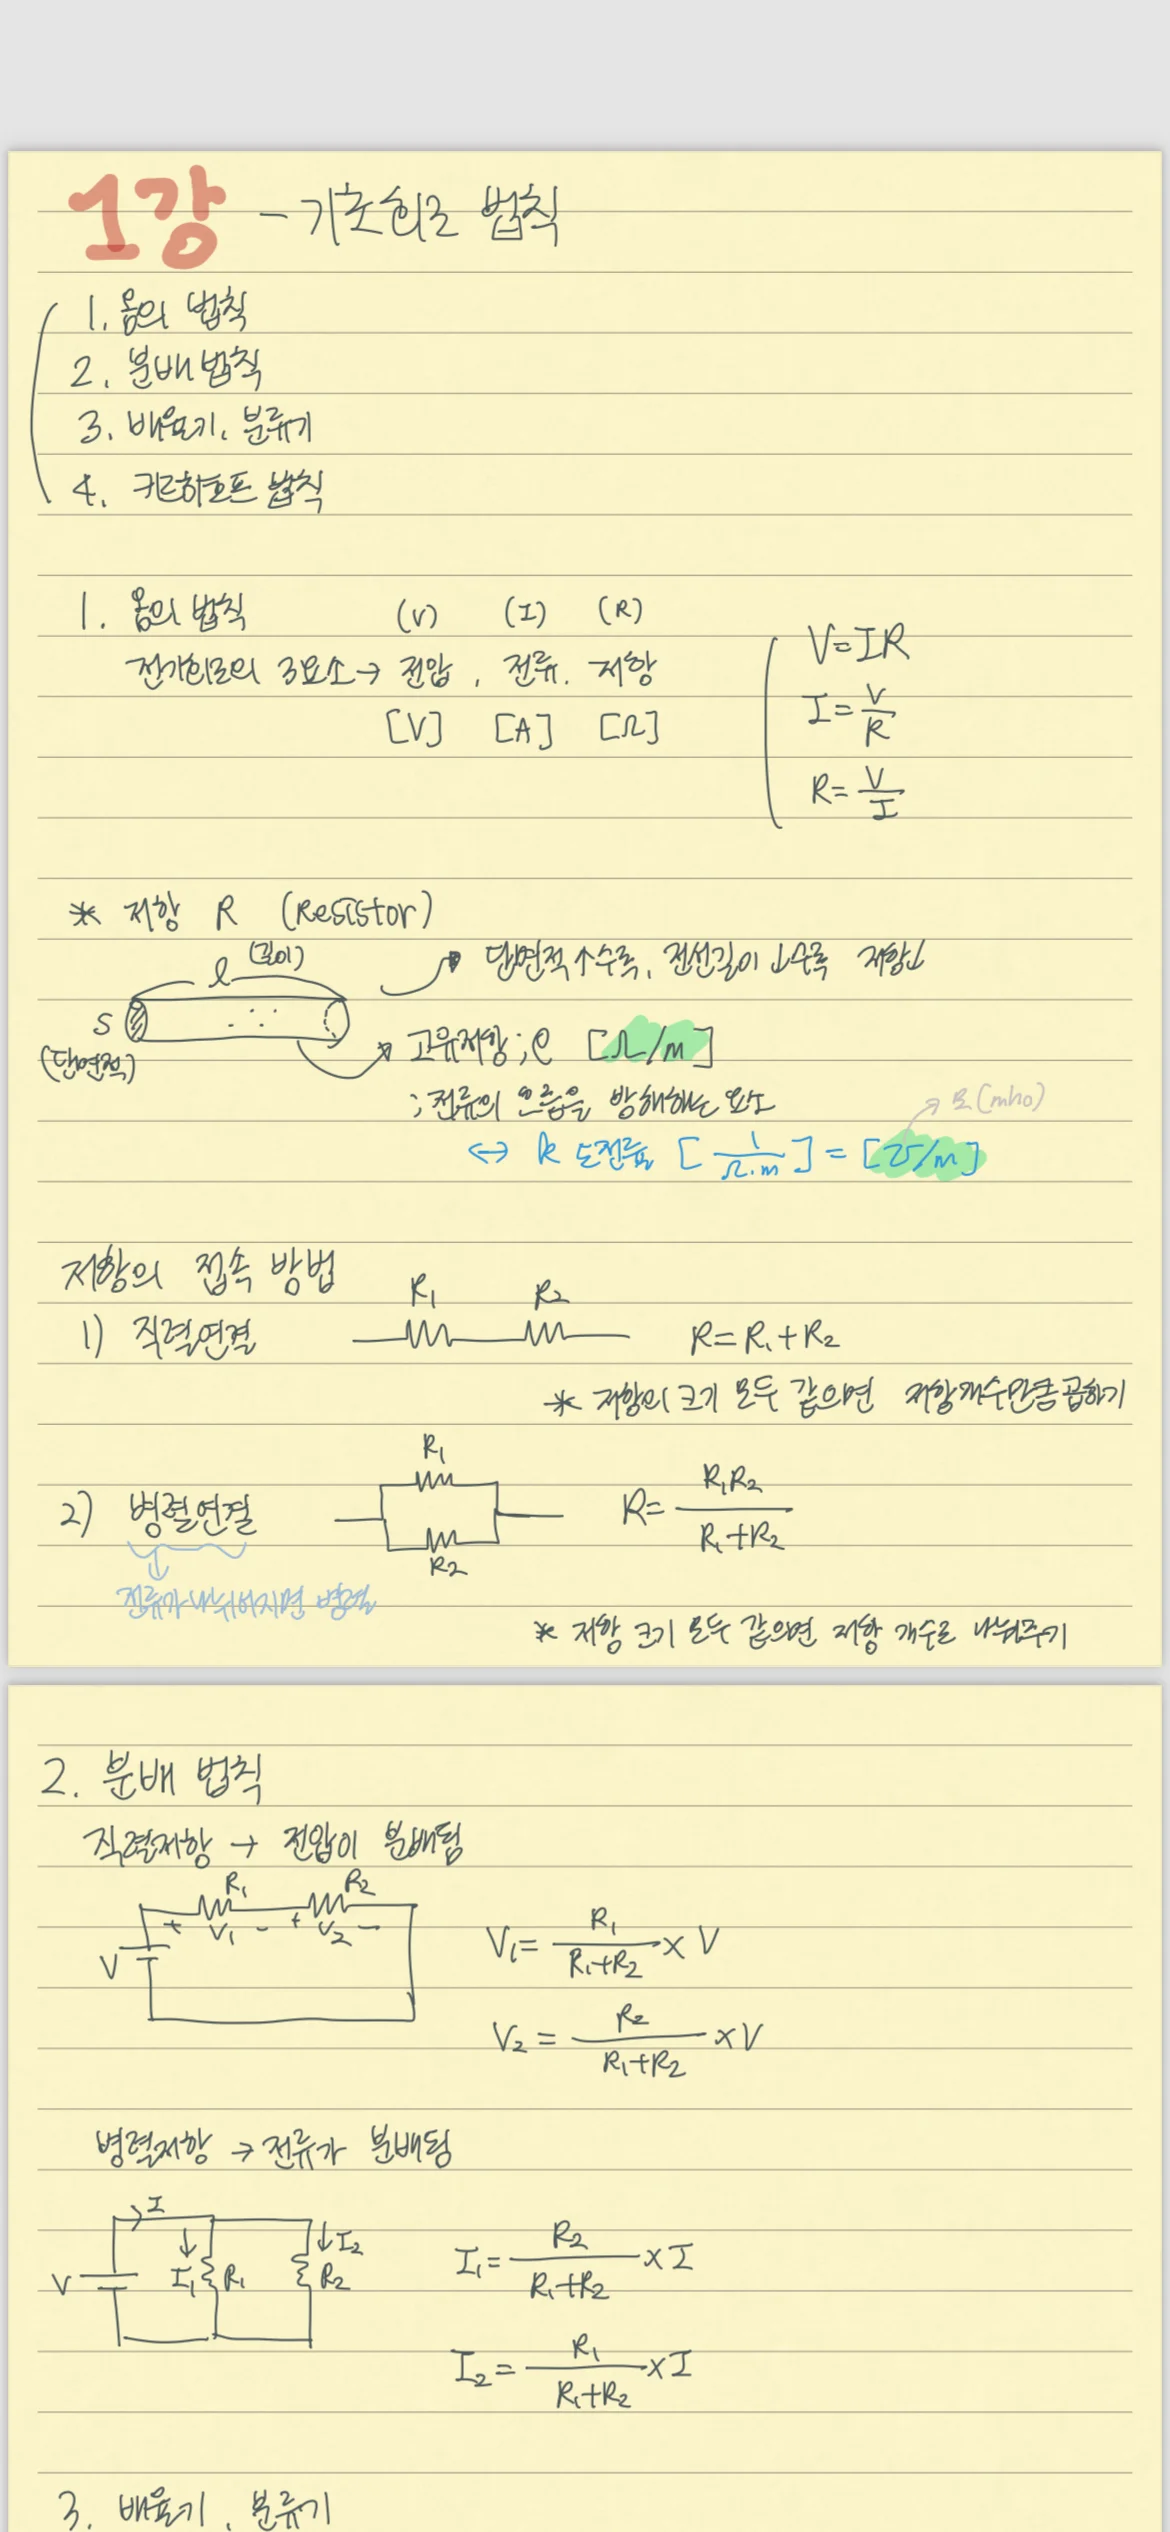 1강 - 기초회로 법칙
1. 옴의 법칙
2. 분배법칙
3. 배율기, 분류기
4. 키르히호프 법칙
1. 옴의 법칙 (V) (I) (R)
전기회로의 3요소→ 전압, 전류, 저항
[V] [A] [Ω]
V=IR
I=V/R
R=V/I
* 저항 R (Resistor)
l (길이)
S
(단면적)
단면적↑수록, 전선길이↓수록 저항↓
고유저항 ; ρ [Ω/m]
; 전류의 흐름을 방해하는 요소
→ 모(mho)
↔ k 도전율 [1/Ω·m] = [℧/m]
저항의 접속 방법
1) 직렬연결 R₁ R₂ R=R₁+R₂
* 저항의 크기 모두 같으면 저항개수만큼 곱하기
2) 병렬연결 R₁ R₂ R= R₁R₂/R₁+R₂
전류가 나눠어지면 병렬
* 저항 크기 모두 같으면 저항 개수로 나눠주기
2. 분배 법칙
직렬저항 → 전압이 분배됨
R₁ R₂
+ V₁ - + V₂ -
V
V₁= R₁/R₁+R₂ × V
V₂ = R₂/R₁+R₂ × V
병렬저항 → 전류가 분배됨
I
V I₁ R₁ I₂ R₂
I₁= R₂/R₁+R₂ × I
I₂= R₁/R₁+R₂ × I
3. 배율기, 분류기